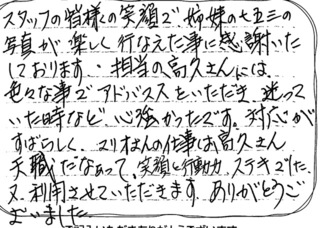 スタッフの皆様の笑顔で、姉妹の七五三の
写真が楽しく行なえた事に感謝いた
しております。担当の高久さんには、
色々な事でアドバスをいただき、迷って
いた時など、心強かったです。対応が
すばらしく、スリオんの仕事は高久さん
天職だなぁって、笑顔と行動力、ステキでした。
又、利用させていただきます。ありがとうご
ざいました。